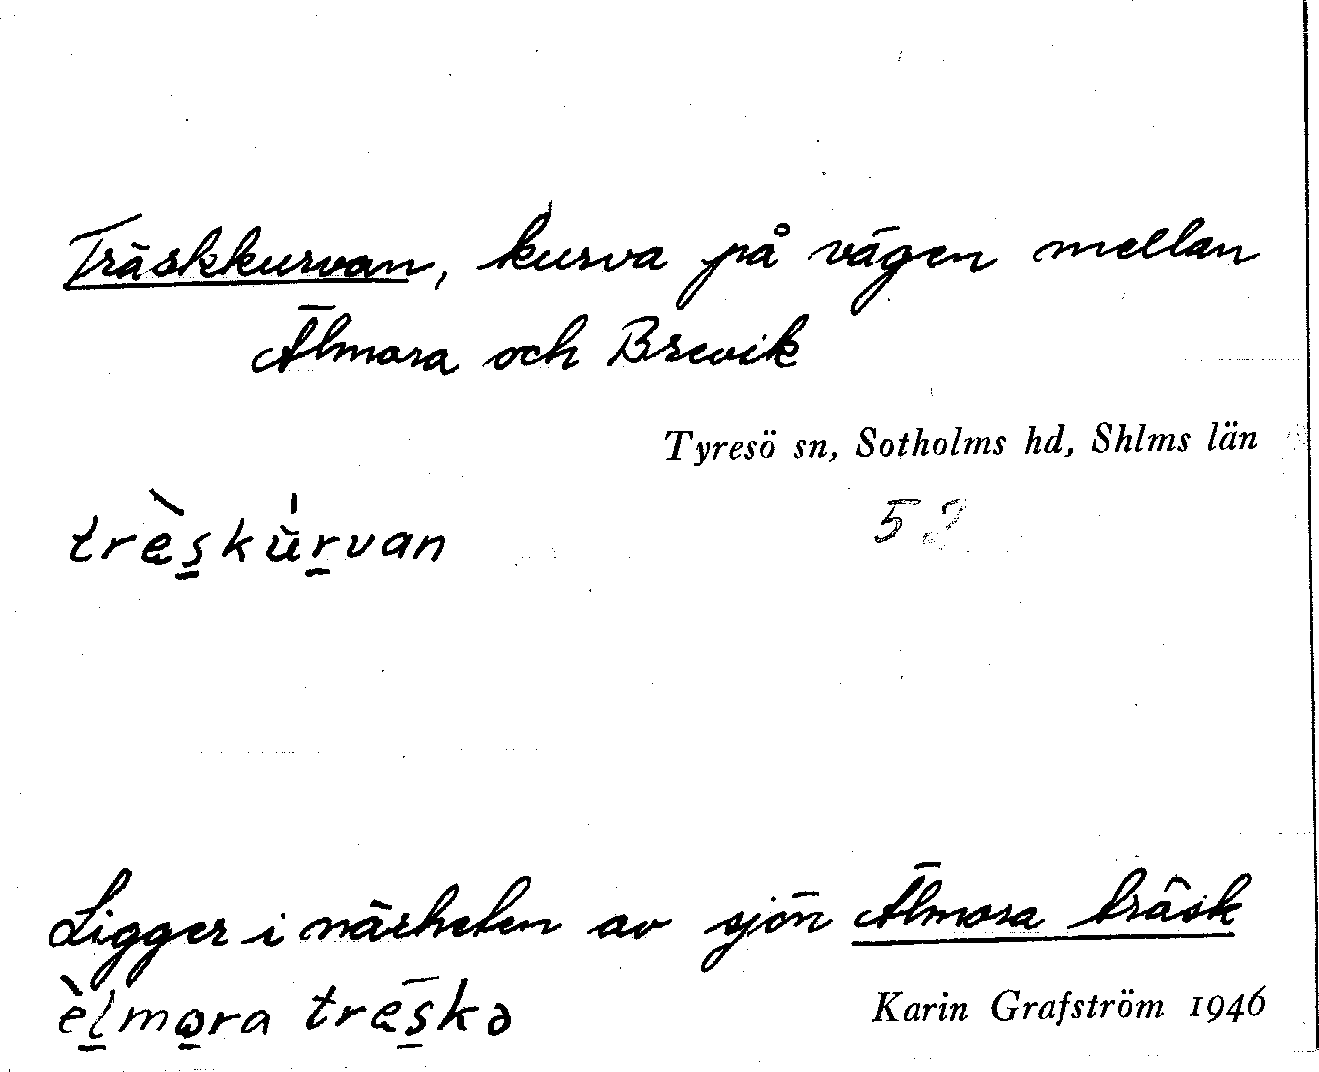 Träskkurvan, kurva på vägen mellan
Älmora och Brevik
Tyresö sn, Sotholms hd, Shlms län
trèskùrvan
52
Ligger i närheten av sjön Älmora träsk
èlmora treskə
Karin Grafström 1946